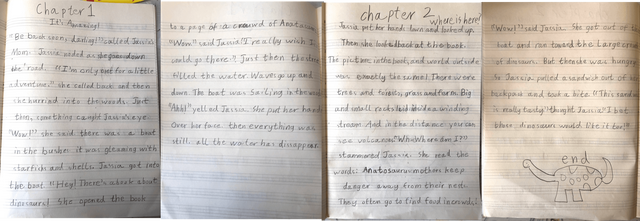 Chapter 1
It's Amazing!
"Be back soon, darling!" called Jassia's
Mom. Jassia nodded as she ran down
the road. "I'm only out for a little
adventure." she called back and then
she hurried into the woods. Just
then, something caught Jassia's eye.
"Wow!" she said there was a boat
in the bushes it was gleaming with
starfish and shells. Jassia got into
the boat "Hey! There's a book about
dinosaurs! She opened the book
to a page of a crowd of Anatosaurus
"Wow" said Jassia! I really wish I
could go there. Just then the
filled the water. Waves go up and
down. The boat was sailing in the
"Ahh!" yelled Jassia. She put her hand
Over her face then everything was
still. all the water has disappear.
chapter 2
where is here?
Jassia put her hands down and looked up.
Then she looked back at the book.
The picture in the book and world outside
was the same! There were
trees and forests, grass and ferns. Big
and small rocks in a winding
stream. And in the distance you can
see volcanos. "Wh Where am I?"
stammered Jassia. She read the
words: Anatosaurus mothers keep
danger away from their nest.
They often go to find food in crowds!
"Wow!" said Jassia. She got out of the
boat and ran toward the large crowd
of dinosaurs. But then she was hungry
So Jassia pulled a sandwich out of her
backpack and took a bite. "This sandwich
is really tasty" thought Jassia "I bet
those dinosaurs would like it too!"
end